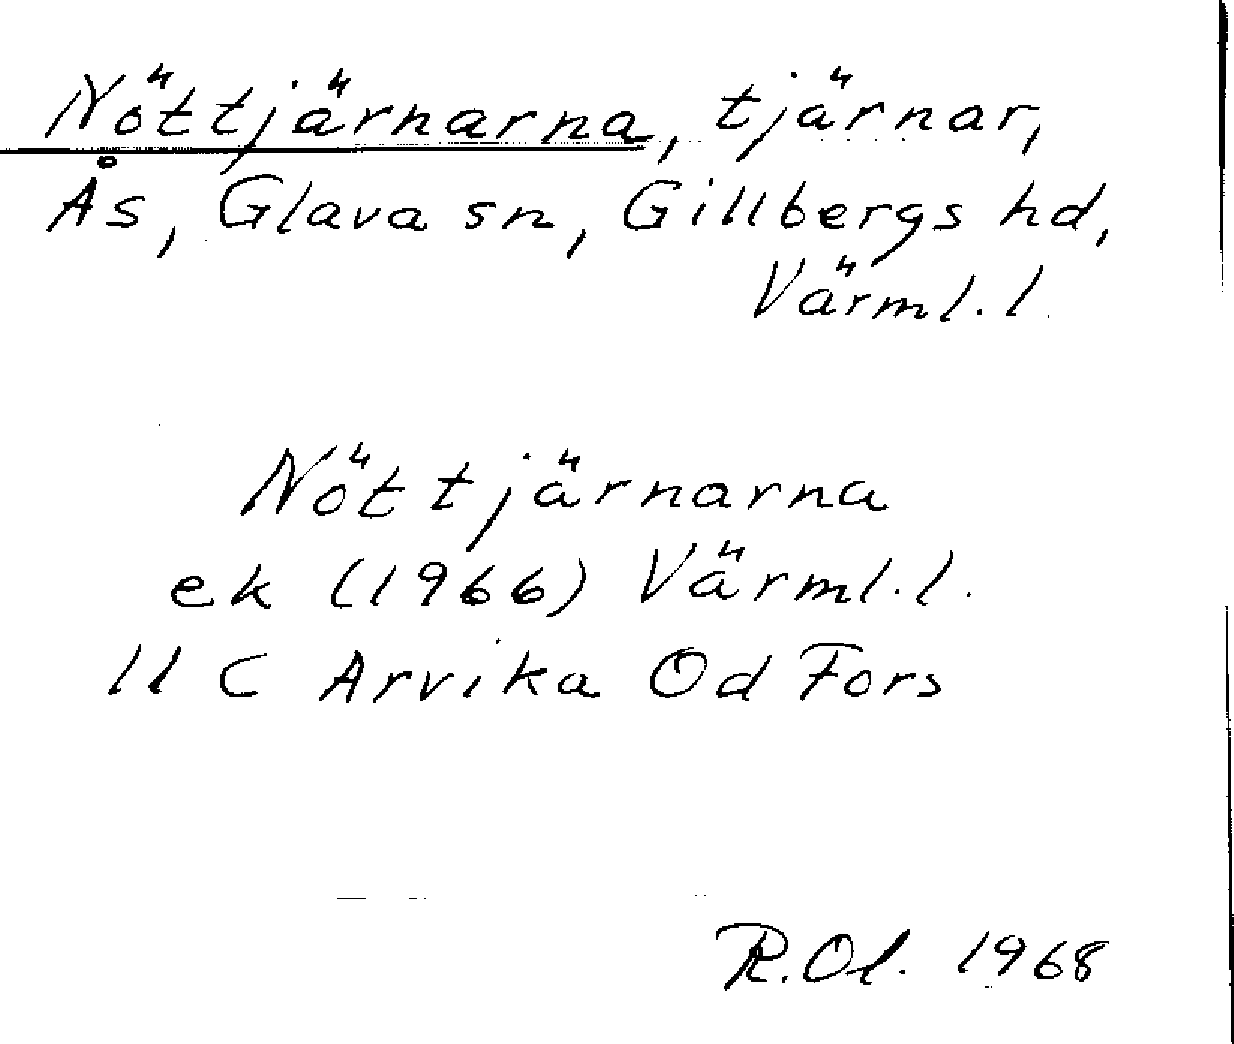 Nöttjärnarna, tjärnar,
Ås, Glava sn, Gillbergs hd,
Värml. l.
Nöttjärnarna
ek (1966) Värml. l.
11 C Arvika Od Fors
R. Ol. 1968